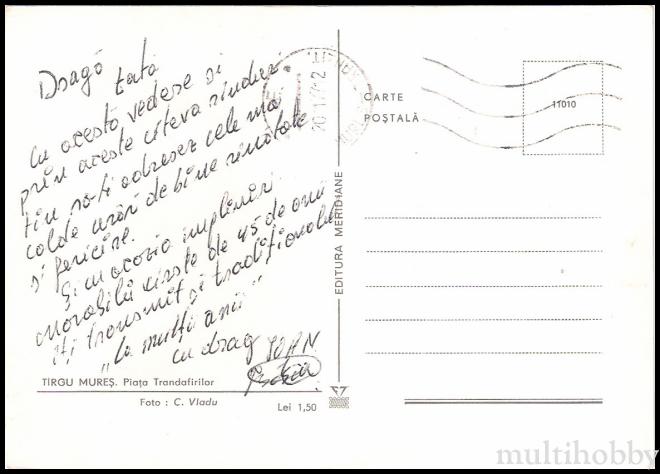 Dragă tată
Cu această vedere și
prin aceste cîteva rînduri
țin să-ți adresez cele mai
calde urări de bine sănătate
și fericire.
Și cu ocazia împlinirii
onorabilă vîrste de 45 de ani
îți transmit și tradiționalul
„La mulți ani"
cu drag IOAN
TÎRGU MUREȘ. Piața Trandafirilor
Foto : C. Vladu
Lei 1,50
EDITURA MERIDIANE
CARTE
POȘTALĂ
11010
multihobby